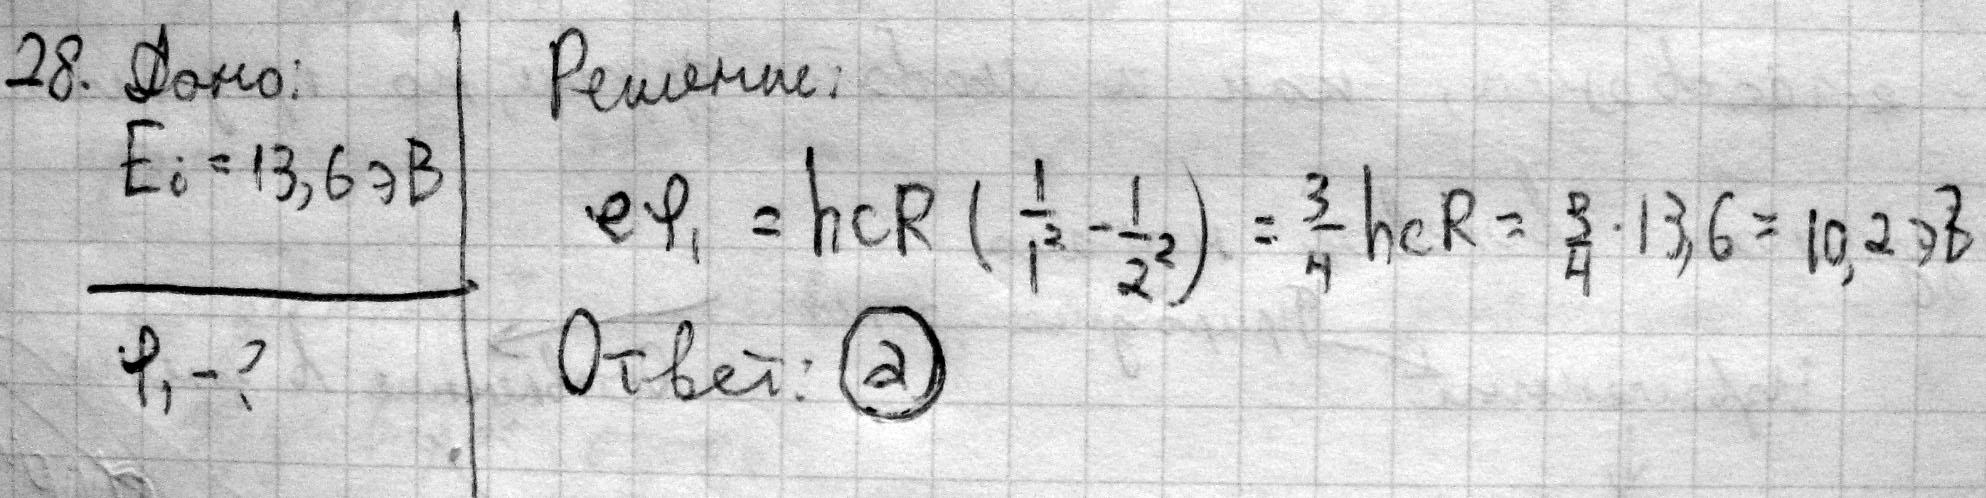 28. Дано:
E_i = 13,6 эВ
φ₁ - ?
Решение:
eφ₁ = hcR (1/1² - 1/2²) = 3/4 hcR = 3/4 · 13,6 = 10,2 эВ
Ответ: 2